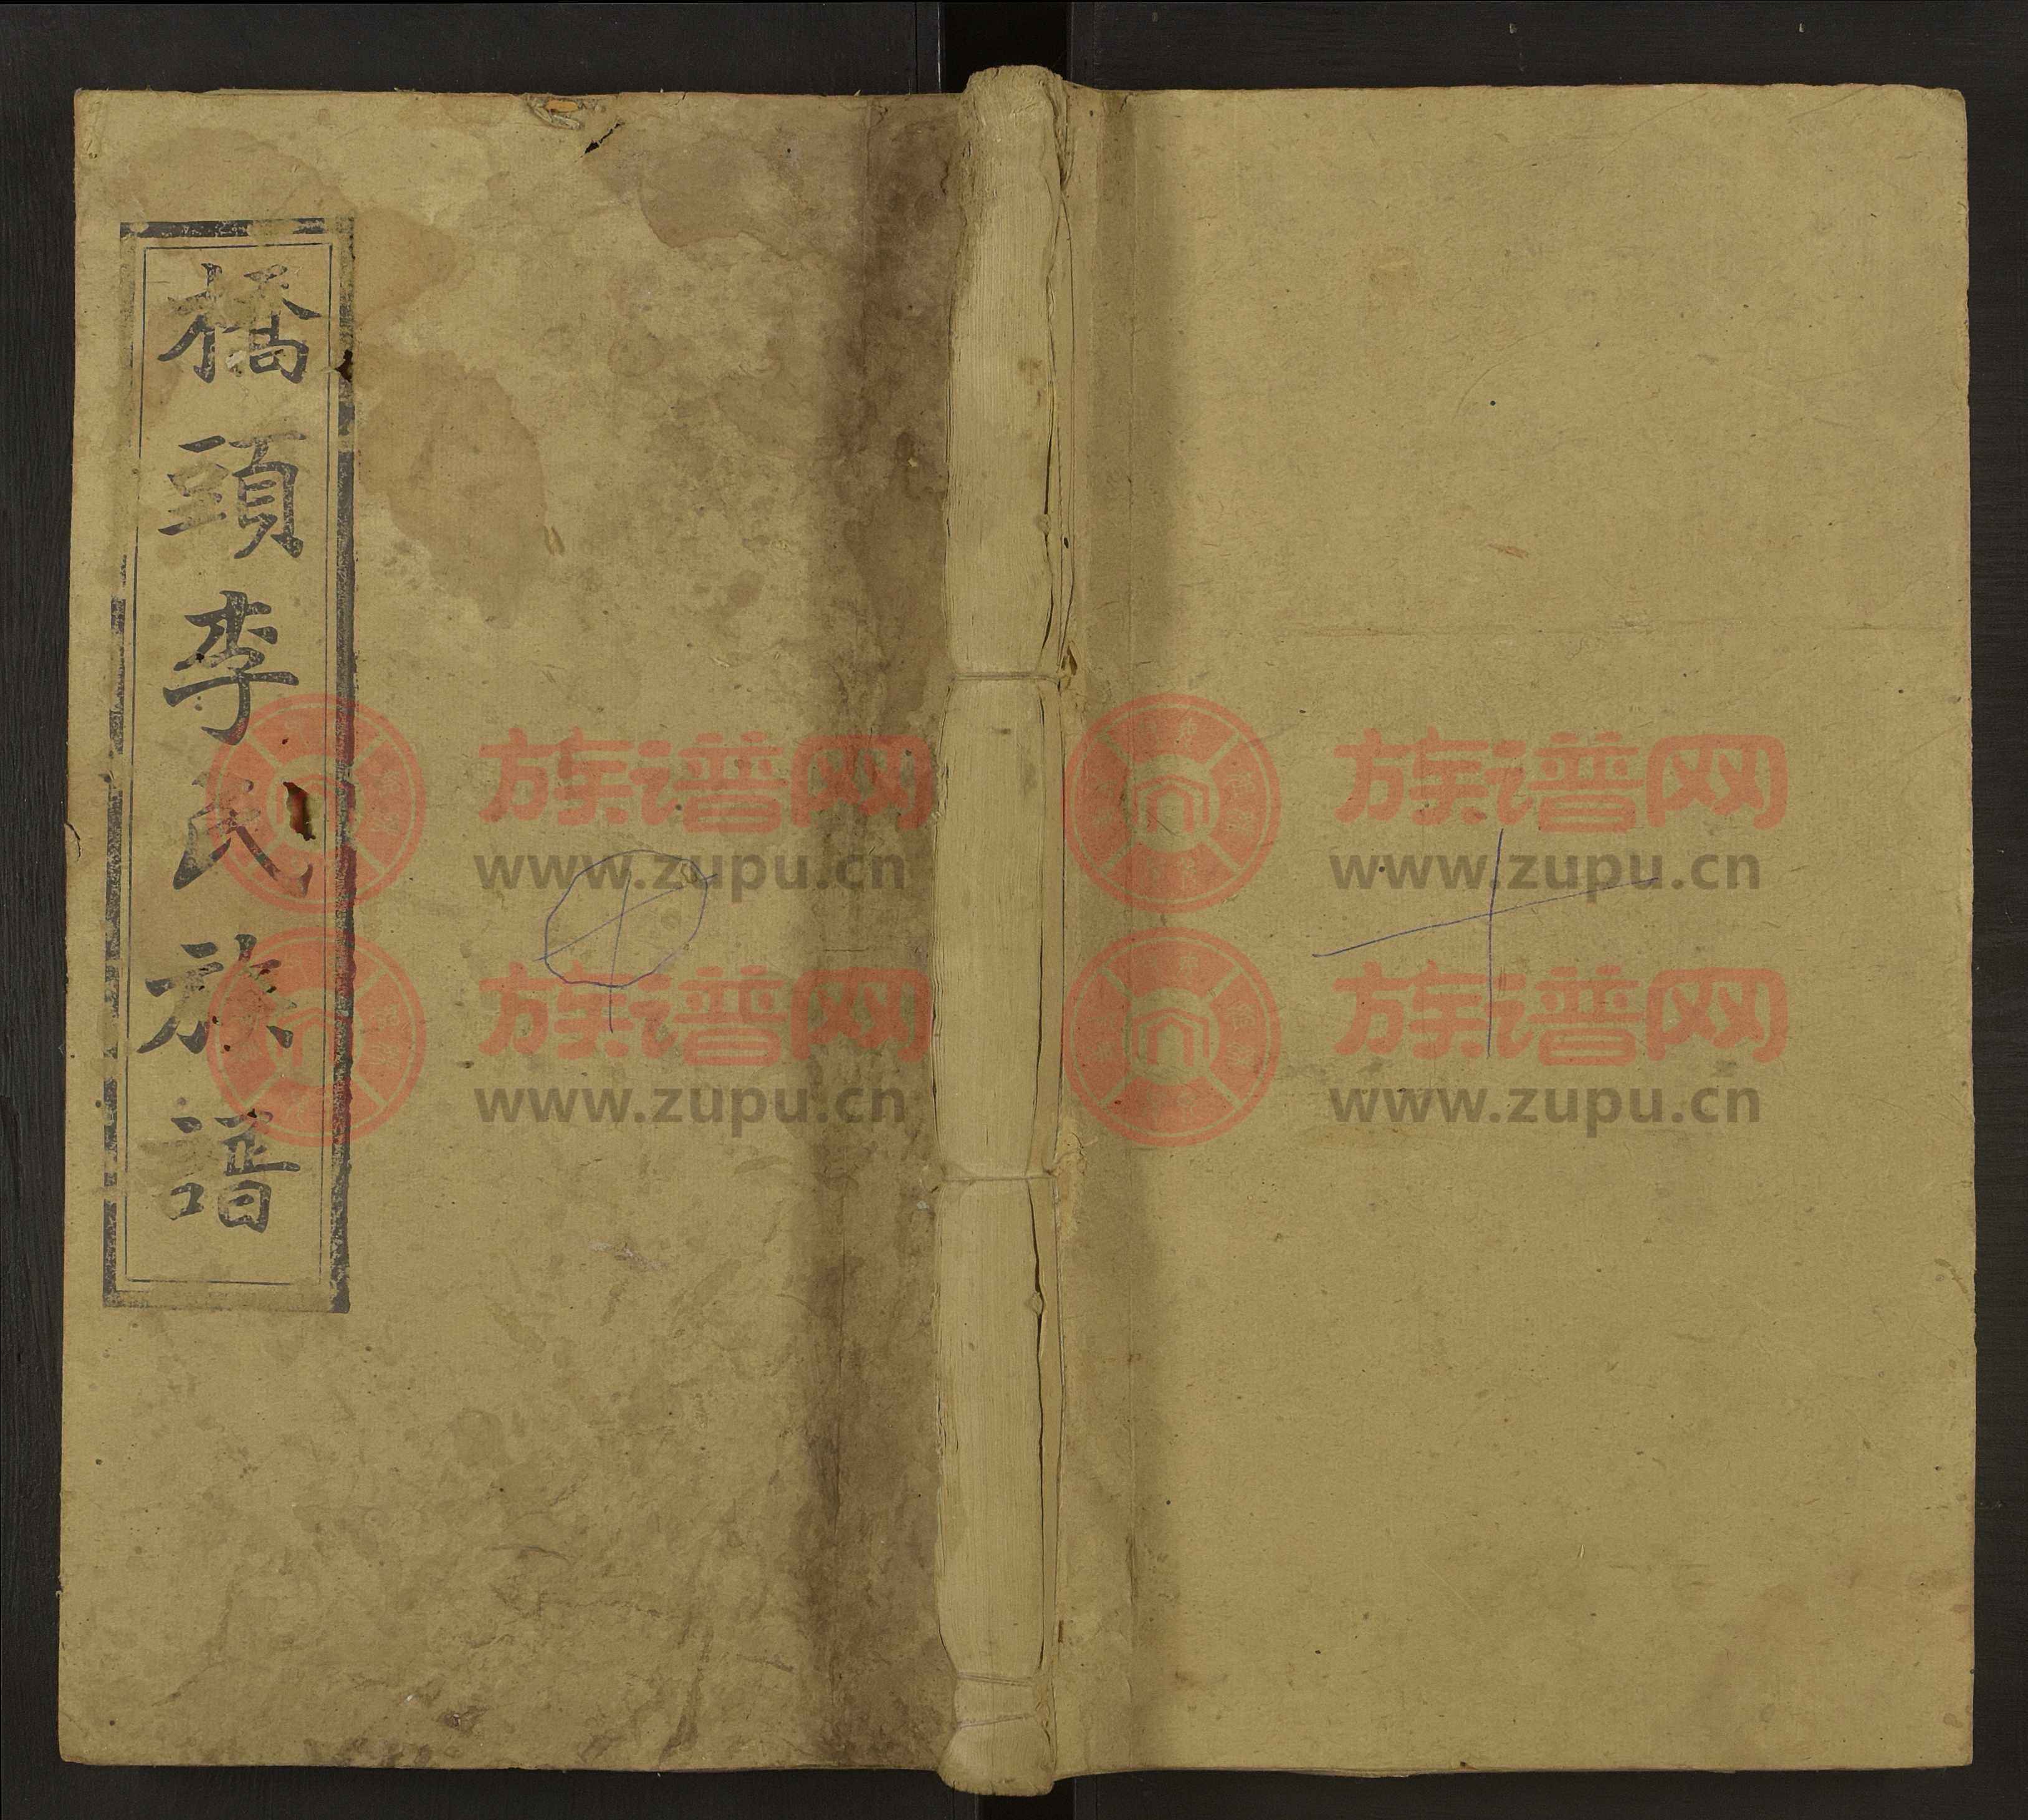 橋頭李氏族譜
十
十
族谱网
www.zupu.cn
族谱网
www.zupu.cn
族谱网
www.zupu.cn
族谱网
www.zupu.cn